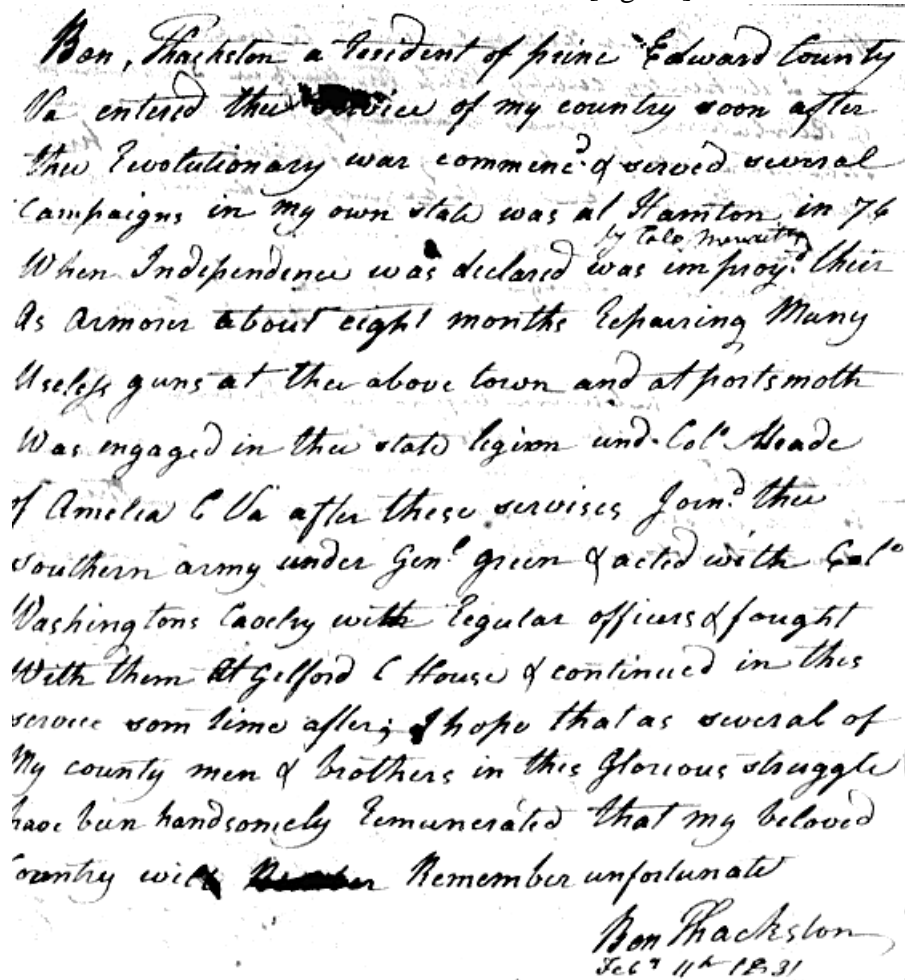 Ben, Thackston a Resident of princ Edward County
Va entered the service of my country soon after
the Revolutionary war commencd. & served several
Campaigns in my own state was at Hamton in 76
by Colo Merewith
When Independence was declared was improyd. their
As Armorer about eight months Repairing Many
Useless guns at the above town and at portsmoth
Was engaged in the state legion und. Colo Meade
of Amelia C Va after these servises Joind. the
southern army under Genl green & acted with Colo
Washingtons Cavelry with Regular officers & fought
With them At Gilford C House & continued in this
service som time after; I hope that as several of
My county men & brothers in this Glorious struggle
have been handsomely Remunerated that my beloved
Country will Remember unfortunate
Ben Thackston
Feby 11th 1831